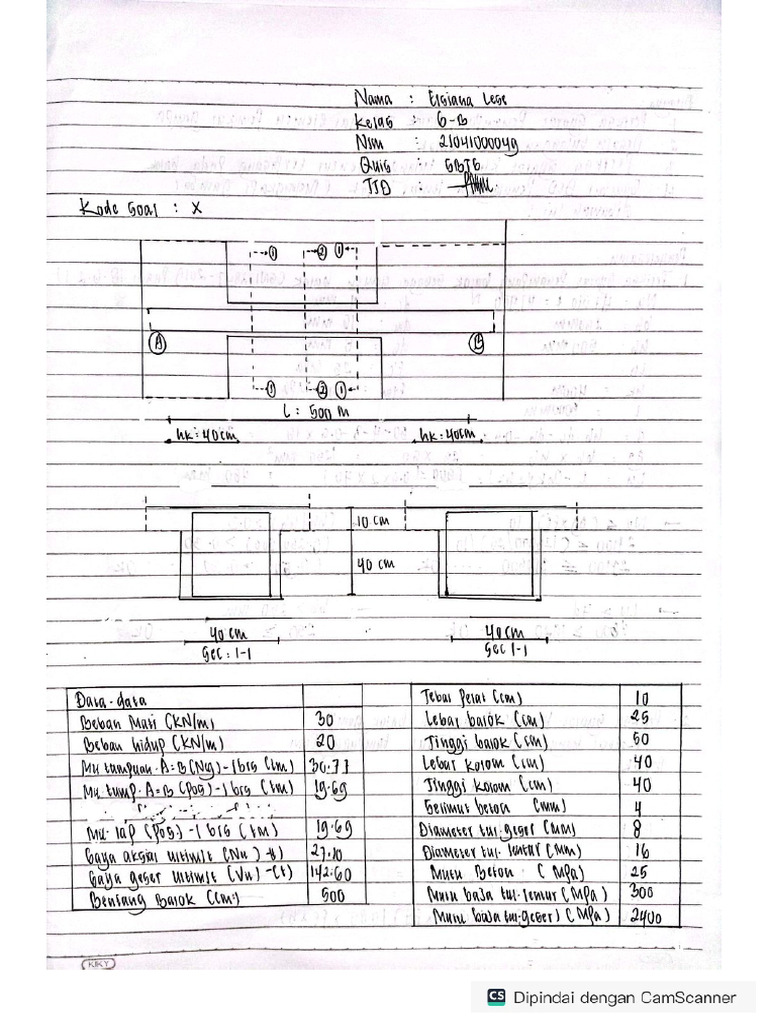 Nama : Elsiana Lese
Kelas : 6-B
Nim : 2104100049
Quis : GBTG
TTD :
Kode Soal : X
① ② ①
A B
① ② ①
L : 500 m
hk = 40cm hk = 40cm
10 cm
40 cm
40 cm 40 cm
Sec : 1-1 Sec 1-1
Data-data
Beban Mati (KN/m) 30
Beban hidup (KN/m) 20
Mu tumpuan A=B (Neg) - 1 bis (tm) 30.77
Mu tump. A=B (Pos) - 1 bis (tm) 19.69
Mu. lap (Pos) - 1 bis (tm) 19.69
Gaya aksial ultimit (Nu) - t) 27.10
Gaya geser ultimit (Vu) - (t) 142.60
Bentang Balok (cm) 500
Tebal Pelat (cm) 10
Lebar balok (cm) 25
Tinggi balok (cm) 50
Lebar kolom (cm) 40
Tinggi kolom (cm) 40
Selimut beton (mm) 4
Diameter tul. geser (mm) 8
Diameter tul. lentur (mm) 16
Mutu Beton (MPa) 25
Mutu baja tul. lentur (MPa) 300
Mutu baja tul. geser) (MPa) 2400
KIKY
CS Dipindai dengan CamScanner